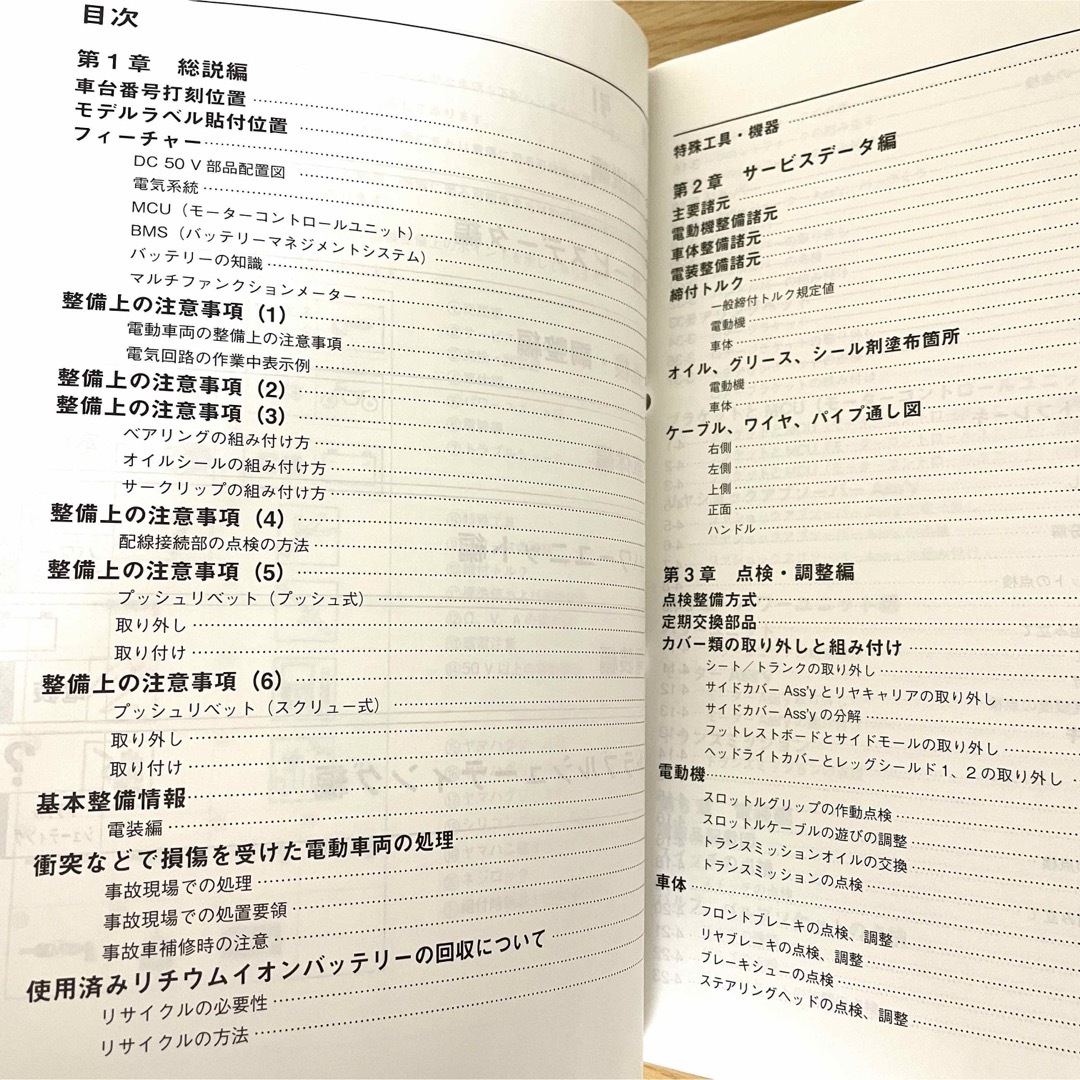 目次
第1章 総説編
車台番号打刻位置
モデルラベル貼付位置
フィーチャー
DC 50 V 部品配置図
電気系統
MCU（モーターコントロールユニット）
BMS（バッテリーマネジメントシステム）
バッテリーの知識
マルチファンクションメーター
整備上の注意事項（1）
電動車両の整備上の注意事項
電気回路の作業中表示例
整備上の注意事項（2）
整備上の注意事項（3）
ベアリングの組み付け方
オイルシールの組み付け方
サークリップの組み付け方
整備上の注意事項（4）
配線接続部の点検の方法
整備上の注意事項（5）
プッシュリベット（プッシュ式）
取り外し
取り付け
整備上の注意事項（6）
プッシュリベット（スクリュー式）
取り外し
取り付け
基本整備情報
電装編
衝突などで損傷を受けた電動車両の処理
事故現場での処理
事故現場での処置要領
事故車補修時の注意
使用済みリチウムイオンバッテリーの回収について
リサイクルの必要性
リサイクルの方法
特殊工具・機器
第2章 サービスデータ編
主要諸元
電動機整備諸元
車体整備諸元
電装整備諸元
締付トルク
一般締付トルク規定値
電動機
車体
オイル、グリース、シール剤塗布箇所
電動機
車体
ケーブル、ワイヤ、パイプ通し図
右側
左側
上側
正面
ハンドル
第3章 点検・調整編
点検整備方式
定期交換部品
カバー類の取り外しと組み付け
シート／トランクの取り外し
サイドカバー Ass'y とリヤキャリアの取り外し
サイドカバー Ass'y の分解
フットレストボードとサイドモールの取り外し
ヘッドライトカバーとレッグシールド 1、2 の取り外し
電動機
スロットルグリップの作動点検
スロットルケーブルの遊びの調整
トランスミッションオイルの交換
トランスミッションの点検
車体
フロントブレーキの点検、調整
リヤブレーキの点検、調整
ブレーキシューの点検
ステアリングヘッドの点検、調整